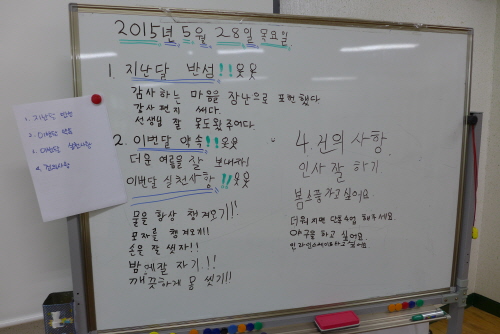 2015년 5월 28일 목요일
1. 지난달 반성!! 웃웃
감사하는 마음을 장난으로 표현했다
감사편지 쓰다.
선생님 잘 못도와주어다.
2. 이번달 약속!! 웃웃
더운 여름을 잘 보내자!
이번달 실천사항!! 웃웃
물을 항상 챙겨오기!!
모자를 챙겨오기!!
손을 잘 씻자!!
밤엔 잘 자기!!
깨끗하게 몸 씻기!!
4. 건의 사항
인사 잘 하기
봄소풍가고싶어요
더워지면 단축수업 해주세요.
야구를 하고 싶어요.
1. 지난달 반성
2. 이번달 약속
3. 이번달 실천사항
4. 건의사항